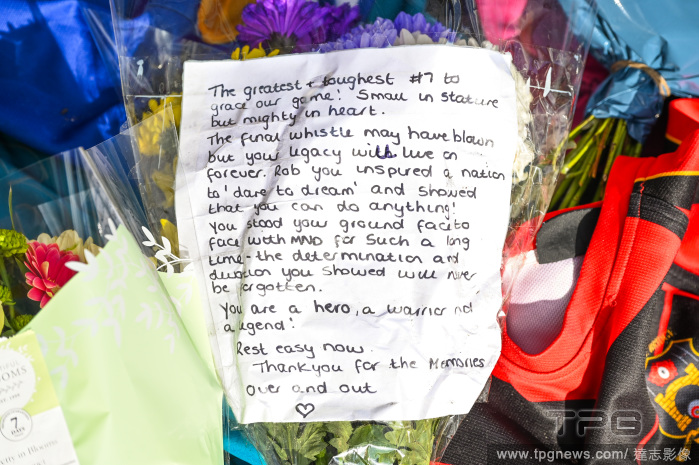 The greatest + toughest #7 to
grace our game! Small in stature
but mighty in heart.
The final whistle may have blown
but your legacy will live on
forever. Rob you inspired a nation
to 'dare to dream' and showed
that you can do anything!
You stood your ground face to
face with MND for such a long
time - the determination and
you showed will never
be forgotten.
You are a hero, a warrior not
a legend!
Rest easy now.
Thankyou for the Memories
over and out
♡
7
TPG
www.tpgnews.com/ 達志影像